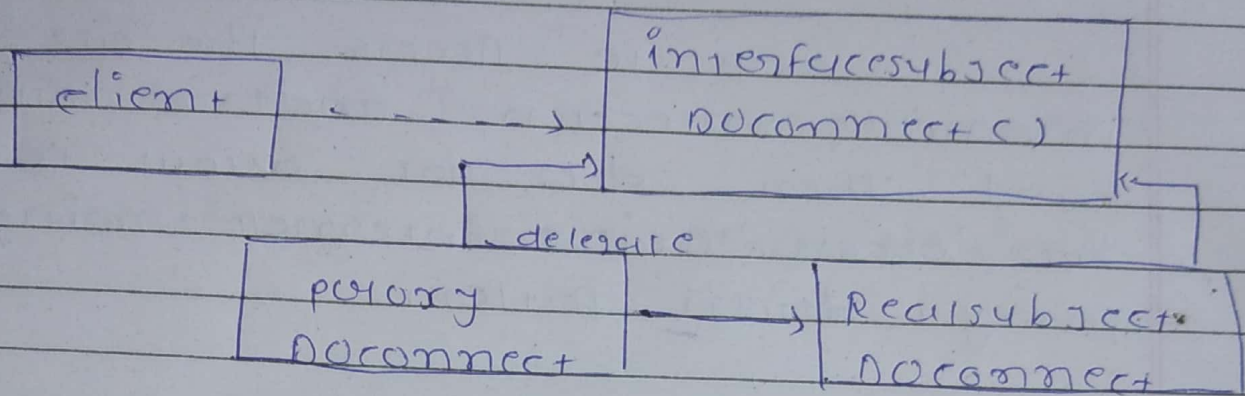 client
interfacesubject
DOconnect()
delegate
proxy
DOconnect
Realsubject
DOconnect